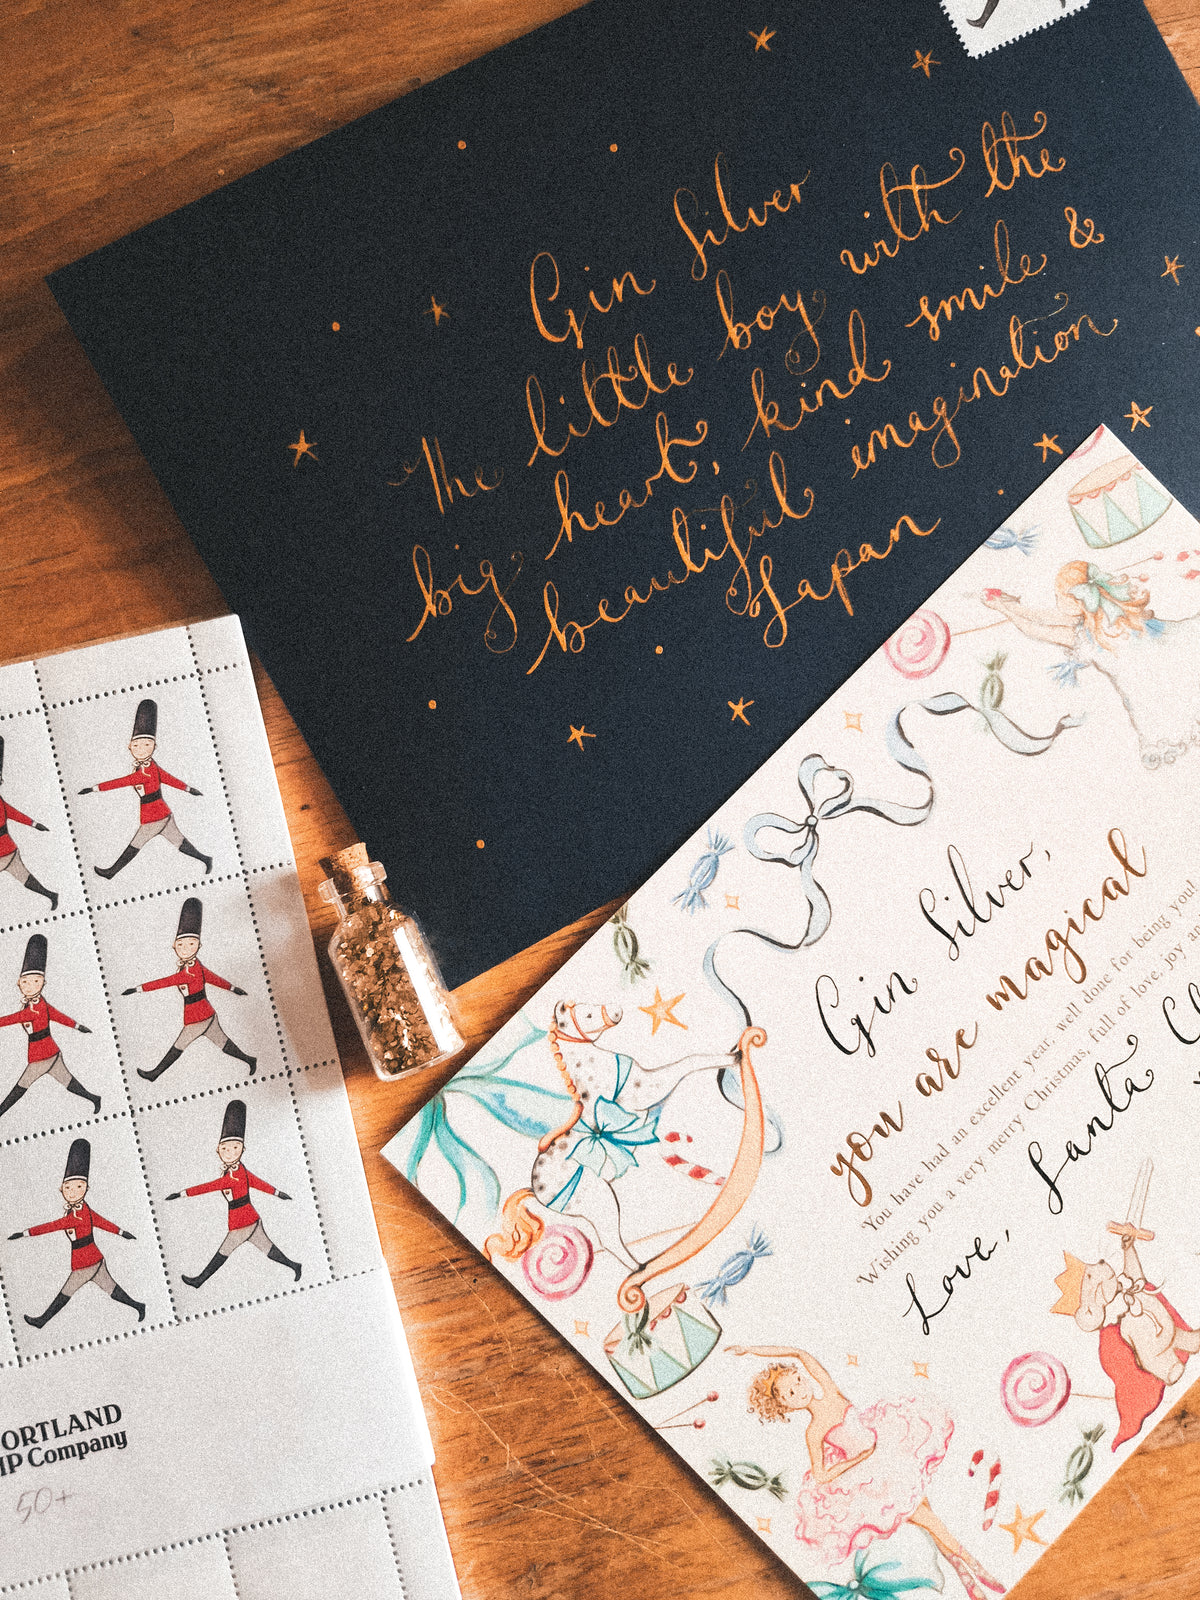 Gin Silver
The little boy with the
big heart, kind smile &
beautiful imagination
Japan
Gin Silver,
you are magical
You have had an excellent year, well done for being you!
Wishing you a very merry Christmas, full of love, joy
Love, Santa
ORTLAND
MP Company
50+